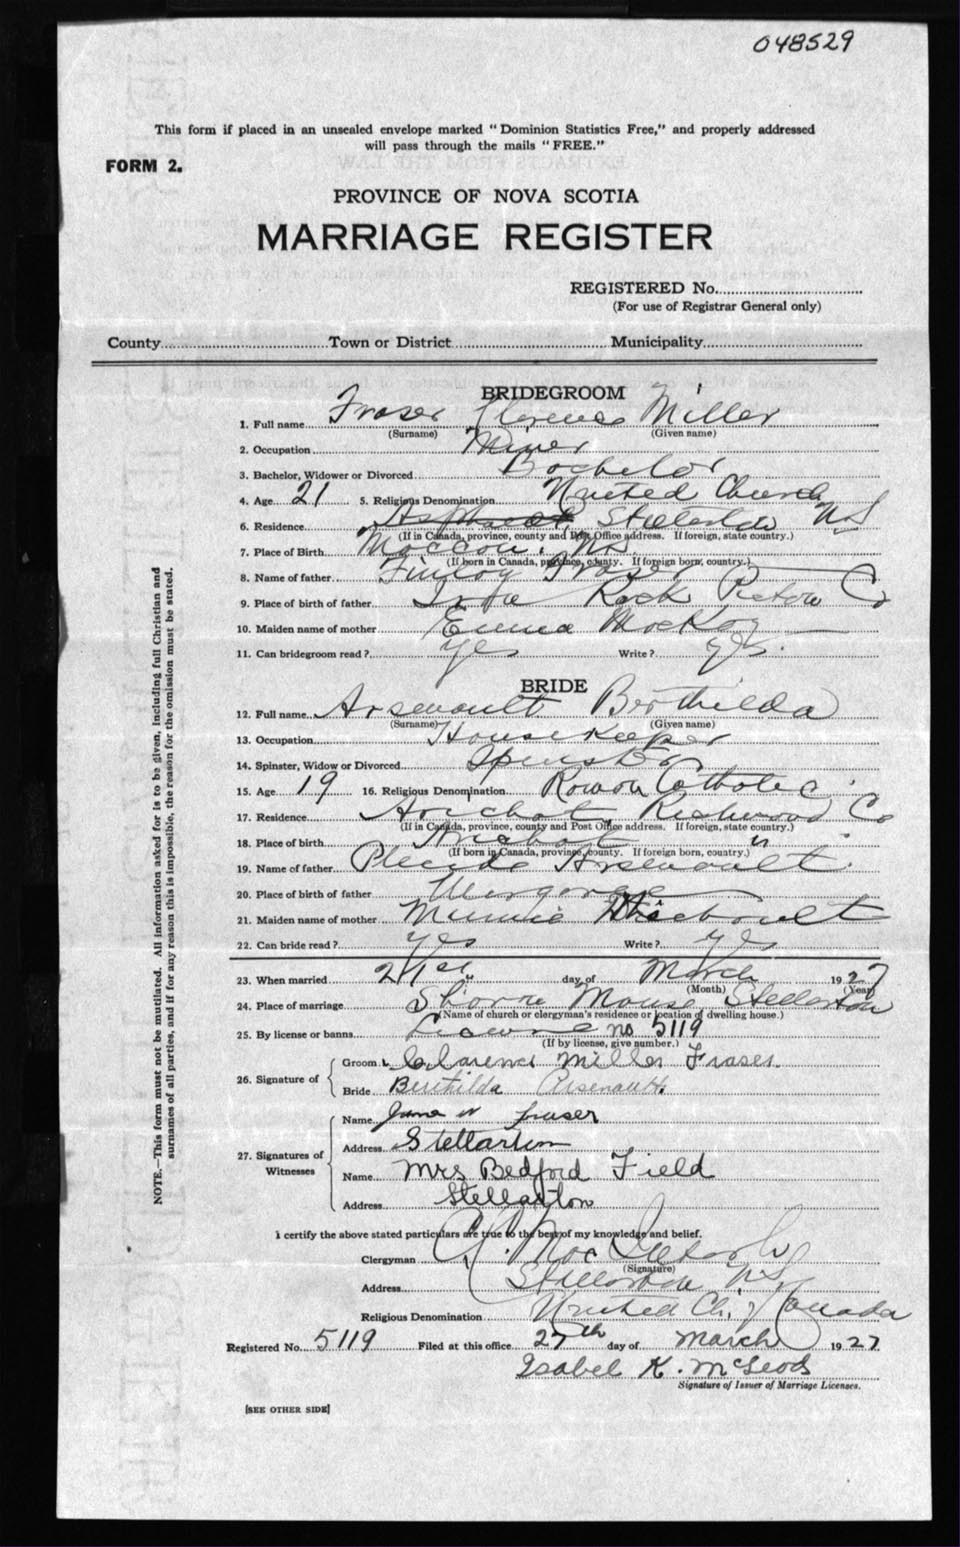 048529
This form if placed in an unsealed envelope marked "Dominion Statistics Free," and properly addressed
will pass through the mails "FREE."
FORM 2.
PROVINCE OF NOVA SCOTIA
MARRIAGE REGISTER
REGISTERED No.
(For use of Registrar General only)
County Town or District Municipality
BRIDEGROOM
1. Full name Fraser Clarence Miller
(Surname) (Given name)
2. Occupation Miner
3. Bachelor, Widower or Divorced Bachelor
4. Age 21 5. Religious Denomination United Church
6. Residence Stellarton NS
(If in Canada, province, county and Post Office address. If foreign, state country.)
7. Place of Birth Maccan. NS
(If born in Canada, province, county. If foreign born, country.)
8. Name of father Finlay Fraser
9. Place of birth of father Rock Pictou Co
10. Maiden name of mother Emma MacKay
11. Can bridegroom read? yes Write? yes.
BRIDE
12. Full name Arsenault Berthilda
(Surname) (Given name)
13. Occupation Housekeeper
14. Spinster, Widow or Divorced Spinster
15. Age 19 16. Religious Denomination Roman Catholic
17. Residence Arichat Richmond Co
(If in Canada, province, county and Post Office address. If foreign, state country.)
18. Place of Birth Arichat "
(If born in Canada, province, county. If foreign born, country.)
19. Name of father Placide Arsenault
20. Place of birth of father
21. Maiden name of mother Minnie
22. Can bride read? yes Write? yes
23. When married 21st day of March 1927
(Month) (Year)
24. Place of marriage Manse Stellarton
(Name of church or clergyman's residence or location of dwelling house.)
25. By license or banns License no 5119
(If by license, give number.)
26. Signature of
Groom Clarence Miller Fraser.
Bride Berthilda Arsenault.
27. Signatures of Witnesses
Name Fraser
Address Stellarton
Name Mrs Bedford Field
Address Stellarton
I certify the above stated particulars are true to the best of my knowledge and belief.
Clergyman
(Signature)
Address Stellarton NS
Religious Denomination United Ch. of Canada
Registered No. 5119 Filed at this office 27th day of March 1927
Isabel K. McLeod
Signature of Issuer of Marriage Licenses.
[SEE OTHER SIDE]
NOTE.—This form must not be mutilated. All information asked for is to be given, including full Christian and
surnames of all parties, and if for any reason this is impossible, the reason for the omission must be stated.